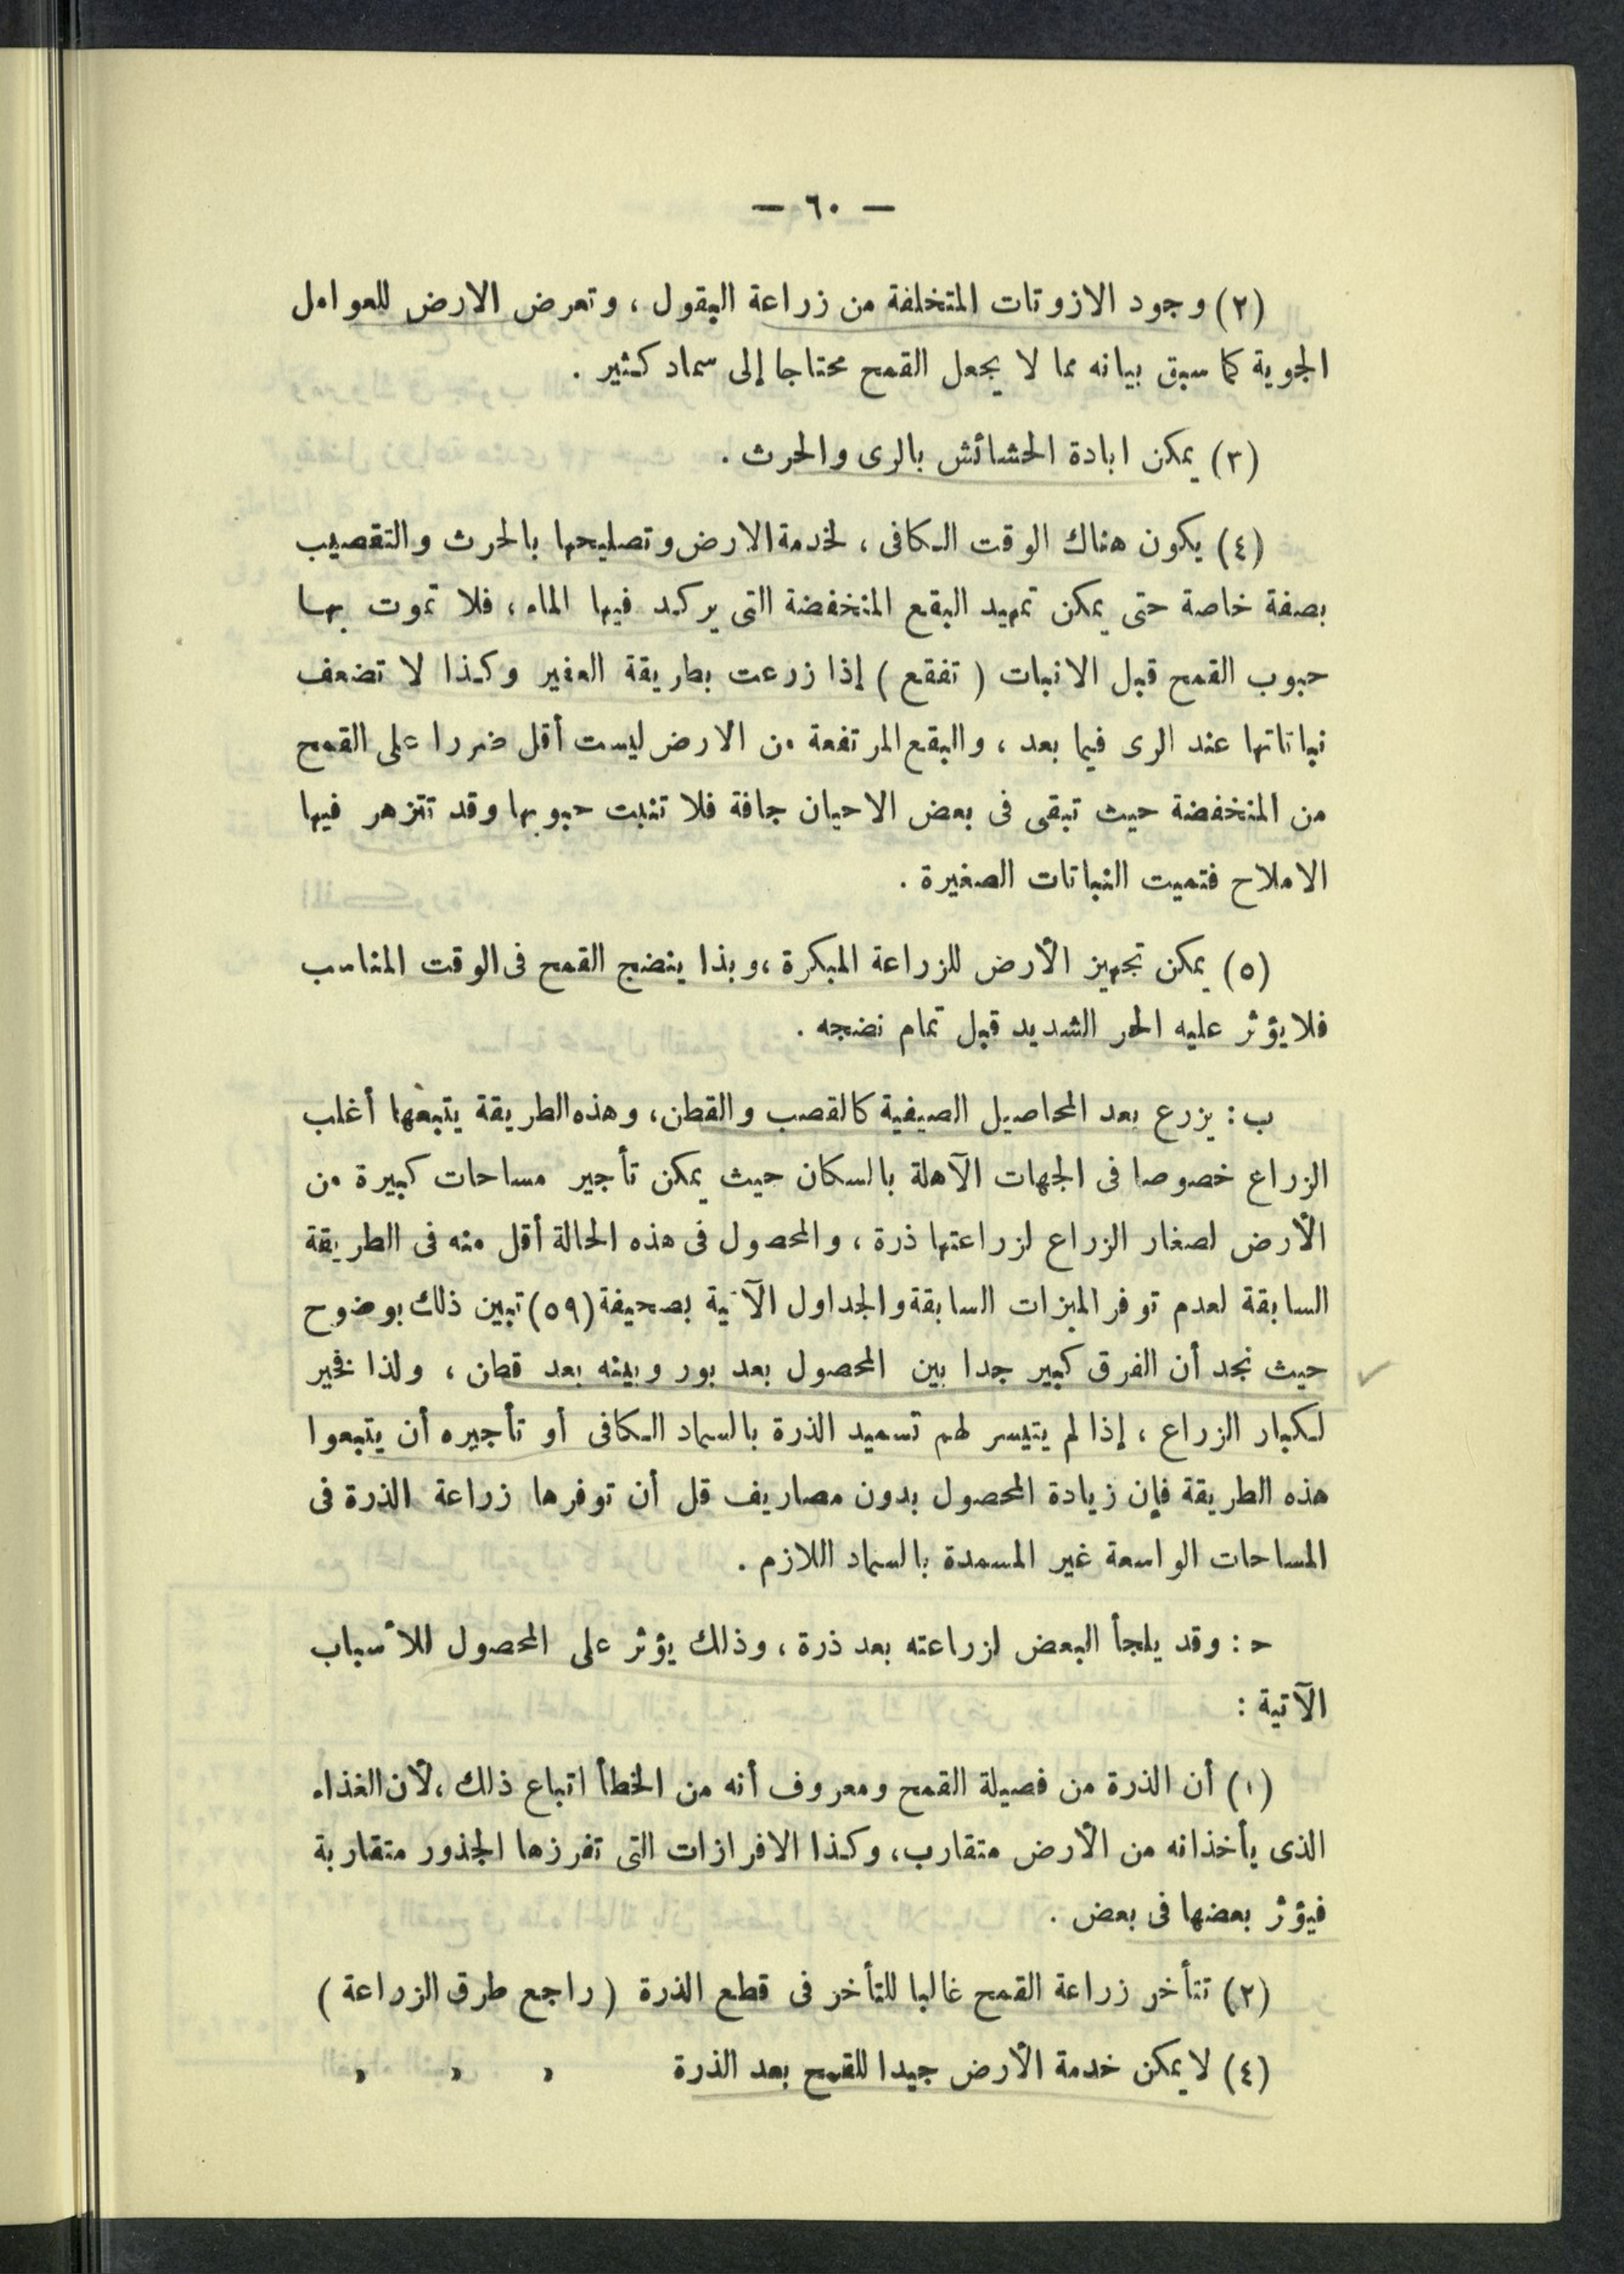 — ٦٠ —
(٢) وجود الازوتات المتخلفة من زراعة البقول ، وتعرض الارض للعوامل
الجوية كما سبق بيانه مما لا يجعل القمح محتاجا إلى سماد كثير .
(٣) يمكن ابادة الحشائش بالرى والحرث .
(٤) يكون هناك الوقت الكافى ، لخدمة الارض وتصليحها بالحرث والتقصيب
بصفة خاصة حتى يمكن تمهيد البقع المنخفضة التى يركد فيها الماء ، فلا تموت بها
حبوب القمح قبل الانبات ( تفقع ) إذا زرعت بطريقة العفير وكذا لا تضعف
نباتاتها عند الرى فيما بعد ، والبقع المرتفعة من الارض ليست أقل ضررا على القمح
من المنخفضة حيث تبقى فى بعض الاحيان جافة فلا تنبت حبوبها وقد تتزهر فيها
الاملاح فتميت النباتات الصغيرة .
(٥) يمكن تجهيز الأرض للزراعة المبكرة ، وبذا ينضج القمح فى الوقت المناسب
فلا يؤثر عليه الحر الشديد قبل تمام نضجه .
ب : يزرع بعد المحاصيل الصيفية كالقصب والقطن ، وهذه الطريقة يتبعها أغلب
الزراع خصوصا فى الجهات الآهلة بالسكان حيث يمكن تأجير مساحات كبيرة من
الأرض لصغار الزراع لزراعتها ذرة ، والمحصول فى هذه الحالة أقل منه فى الطريقة
السابقة لعدم توفر الميزات السابقة والجداول الآتية بصحيفة (٥٩) تبين ذلك بوضوح
حيث نجد أن الفرق كبير جدا بين المحصول بعد بور وبينه بعد قطن ، ولذا فخير
لكبار الزراع ، إذا لم يتيسر لهم تسميد الذرة بالسماد الكافى أو تأجيره أن يتبعوا
هذه الطريقة فإن زيادة المحصول بدون مصاريف قل أن توفرها زراعة الذرة فى
المساحات الواسعة غير المسمدة بالسماد اللازم .
ح : وقد يلجأ البعض لزراعته بعد ذرة ، وذلك يؤثر على المحصول للأسباب
الآتية :
(١) أن الذرة من فصيلة القمح ومعروف أنه من الخطأ اتباع ذلك ، لأن الغذاء
الذى يأخذانه من الأرض متقارب ، وكذا الافرازات التى تفرزها الجذور متقاربة
فيؤثر بعضها فى بعض .
(٢) تتأخر زراعة القمح غالبا للتأخر فى قطع الذرة ( راجع طرق الزراعة )
(٤) لا يمكن خدمة الأرض جيدا للقمح بعد الذرة , , ,